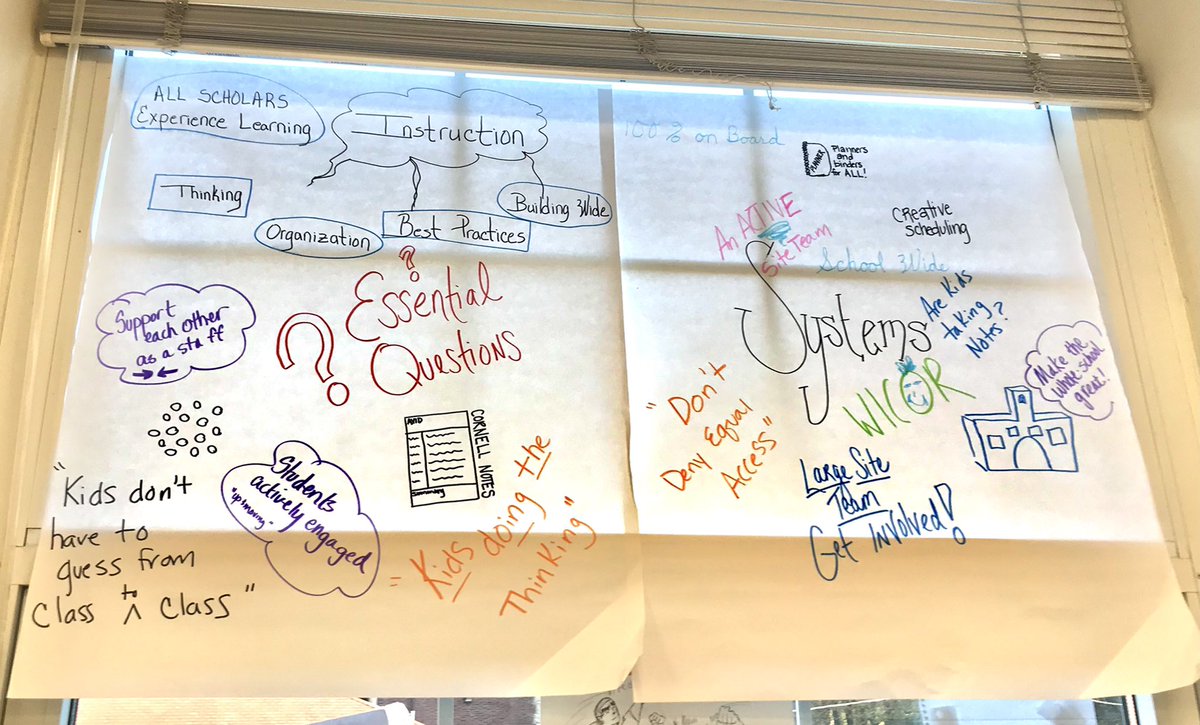 ALL SCHOLARS
Experience Learning
Instruction
Thinking
Organization
Best Practices
Building Wide
Support
each other
as a staff
?
?
Essential
Questions
CORNELL NOTES
Summary
Students
actively engaged
"up & moving"
"Kids don't
have to
guess from
class to class"
= Kids doing the
Thinking"
100% on Board
PLANNER
Planners
and
binders
for ALL!
An ACTIVE
Site Team
Creative
scheduling
School Wide
Systems
Are Kids
taking
Notes?
WICOR
Make the
whole school
great!
"Don't
Deny Equal
Access"
Large Site
Team
Get Involved!